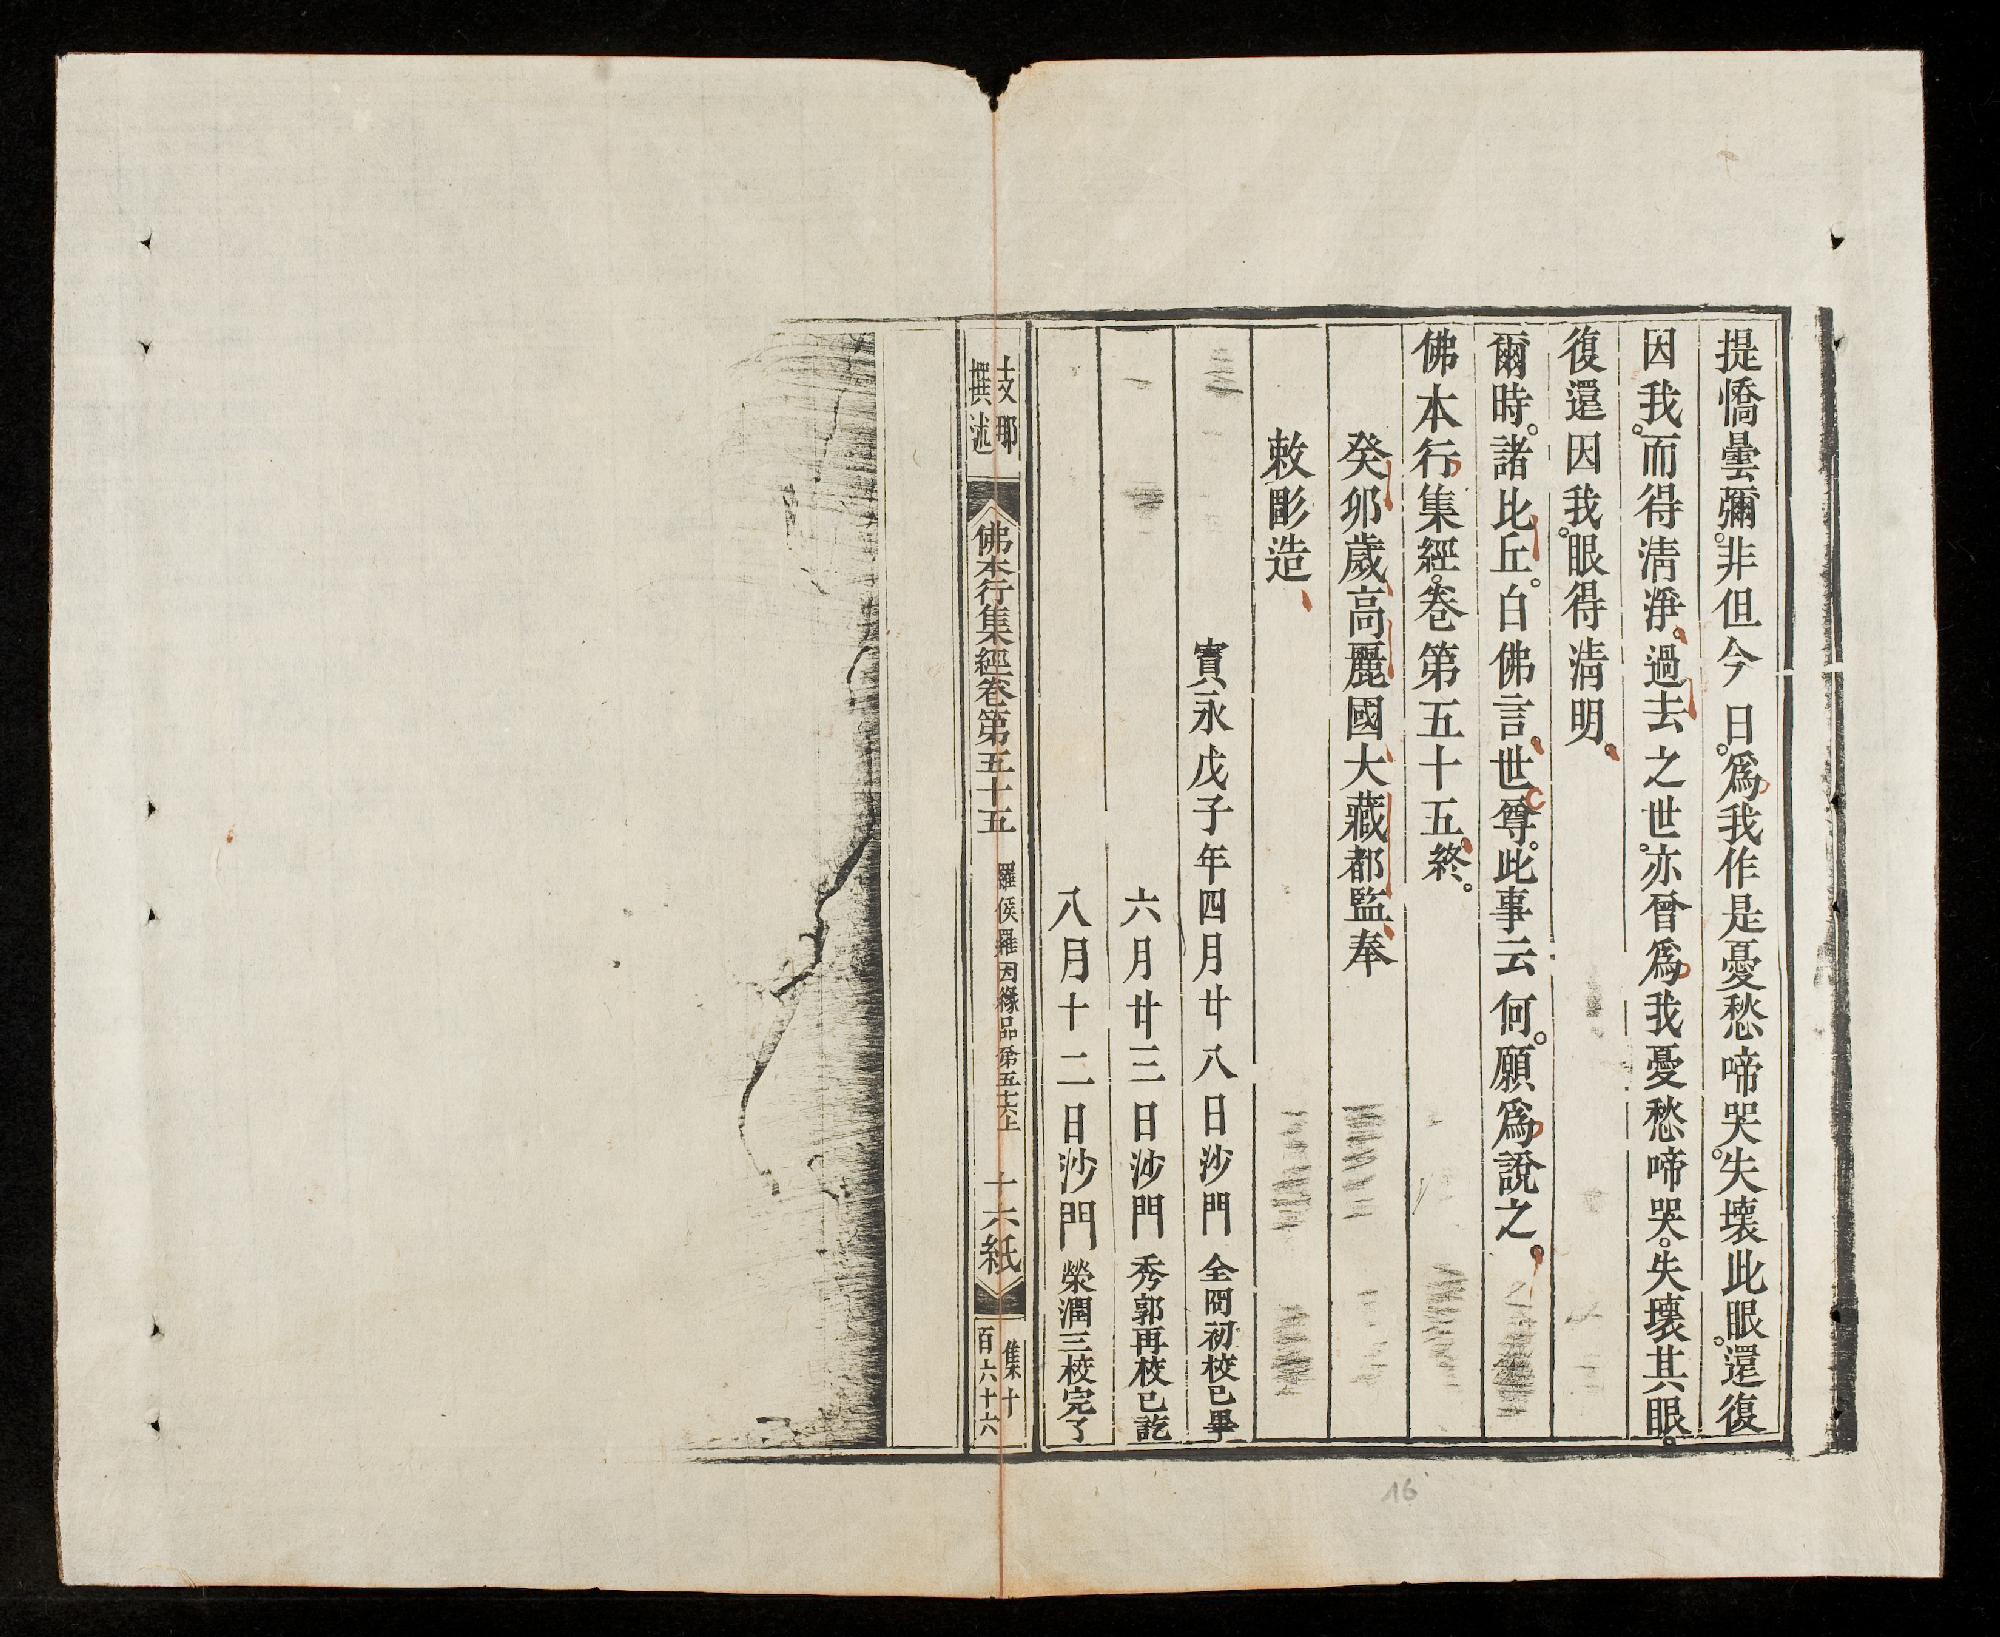 提憍曇彌。非但今日。爲我作是憂愁啼哭。失壞此眼。還復
因我。而得淸淨。過去之世。亦曾爲我憂愁啼哭。失壞其眼。
復還因我。眼得淸明。
爾時。諸比丘。白佛言。世尊。此事云何。願爲說之。
佛本行集經。卷第五十五。終。
癸卯歲高麗國大藏都監奉
敕彫造
寶永戊子年四月廿八日沙門 全岡初校已畢
六月廿三日沙門 秀郭再校已訖
八月十二日沙門 榮潤三校完了
支那
撰述
佛本行集經卷第五十五 羅侯羅因緣品第五十六上 十六紙
集十
百六十六
16